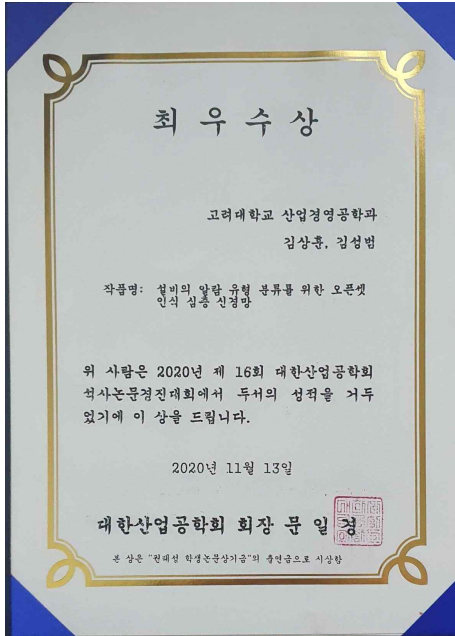 최 우 수 상
고려대학교 산업경영공학과
김상훈, 김성범
작품명: 설비의 알람 유형 분류를 위한 오픈셋
인식 심층 신경망
위 사람은 2020년 제 16회 대한산업공학회
석사논문경진대회에서 두서의 성적을 거두
었기에 이 상을 드립니다.
2020년 11월 13일
대한산업공학회 회장 문 일 경
본 상은 "권태성 학생논문상기금"의 출연금으로 시상함